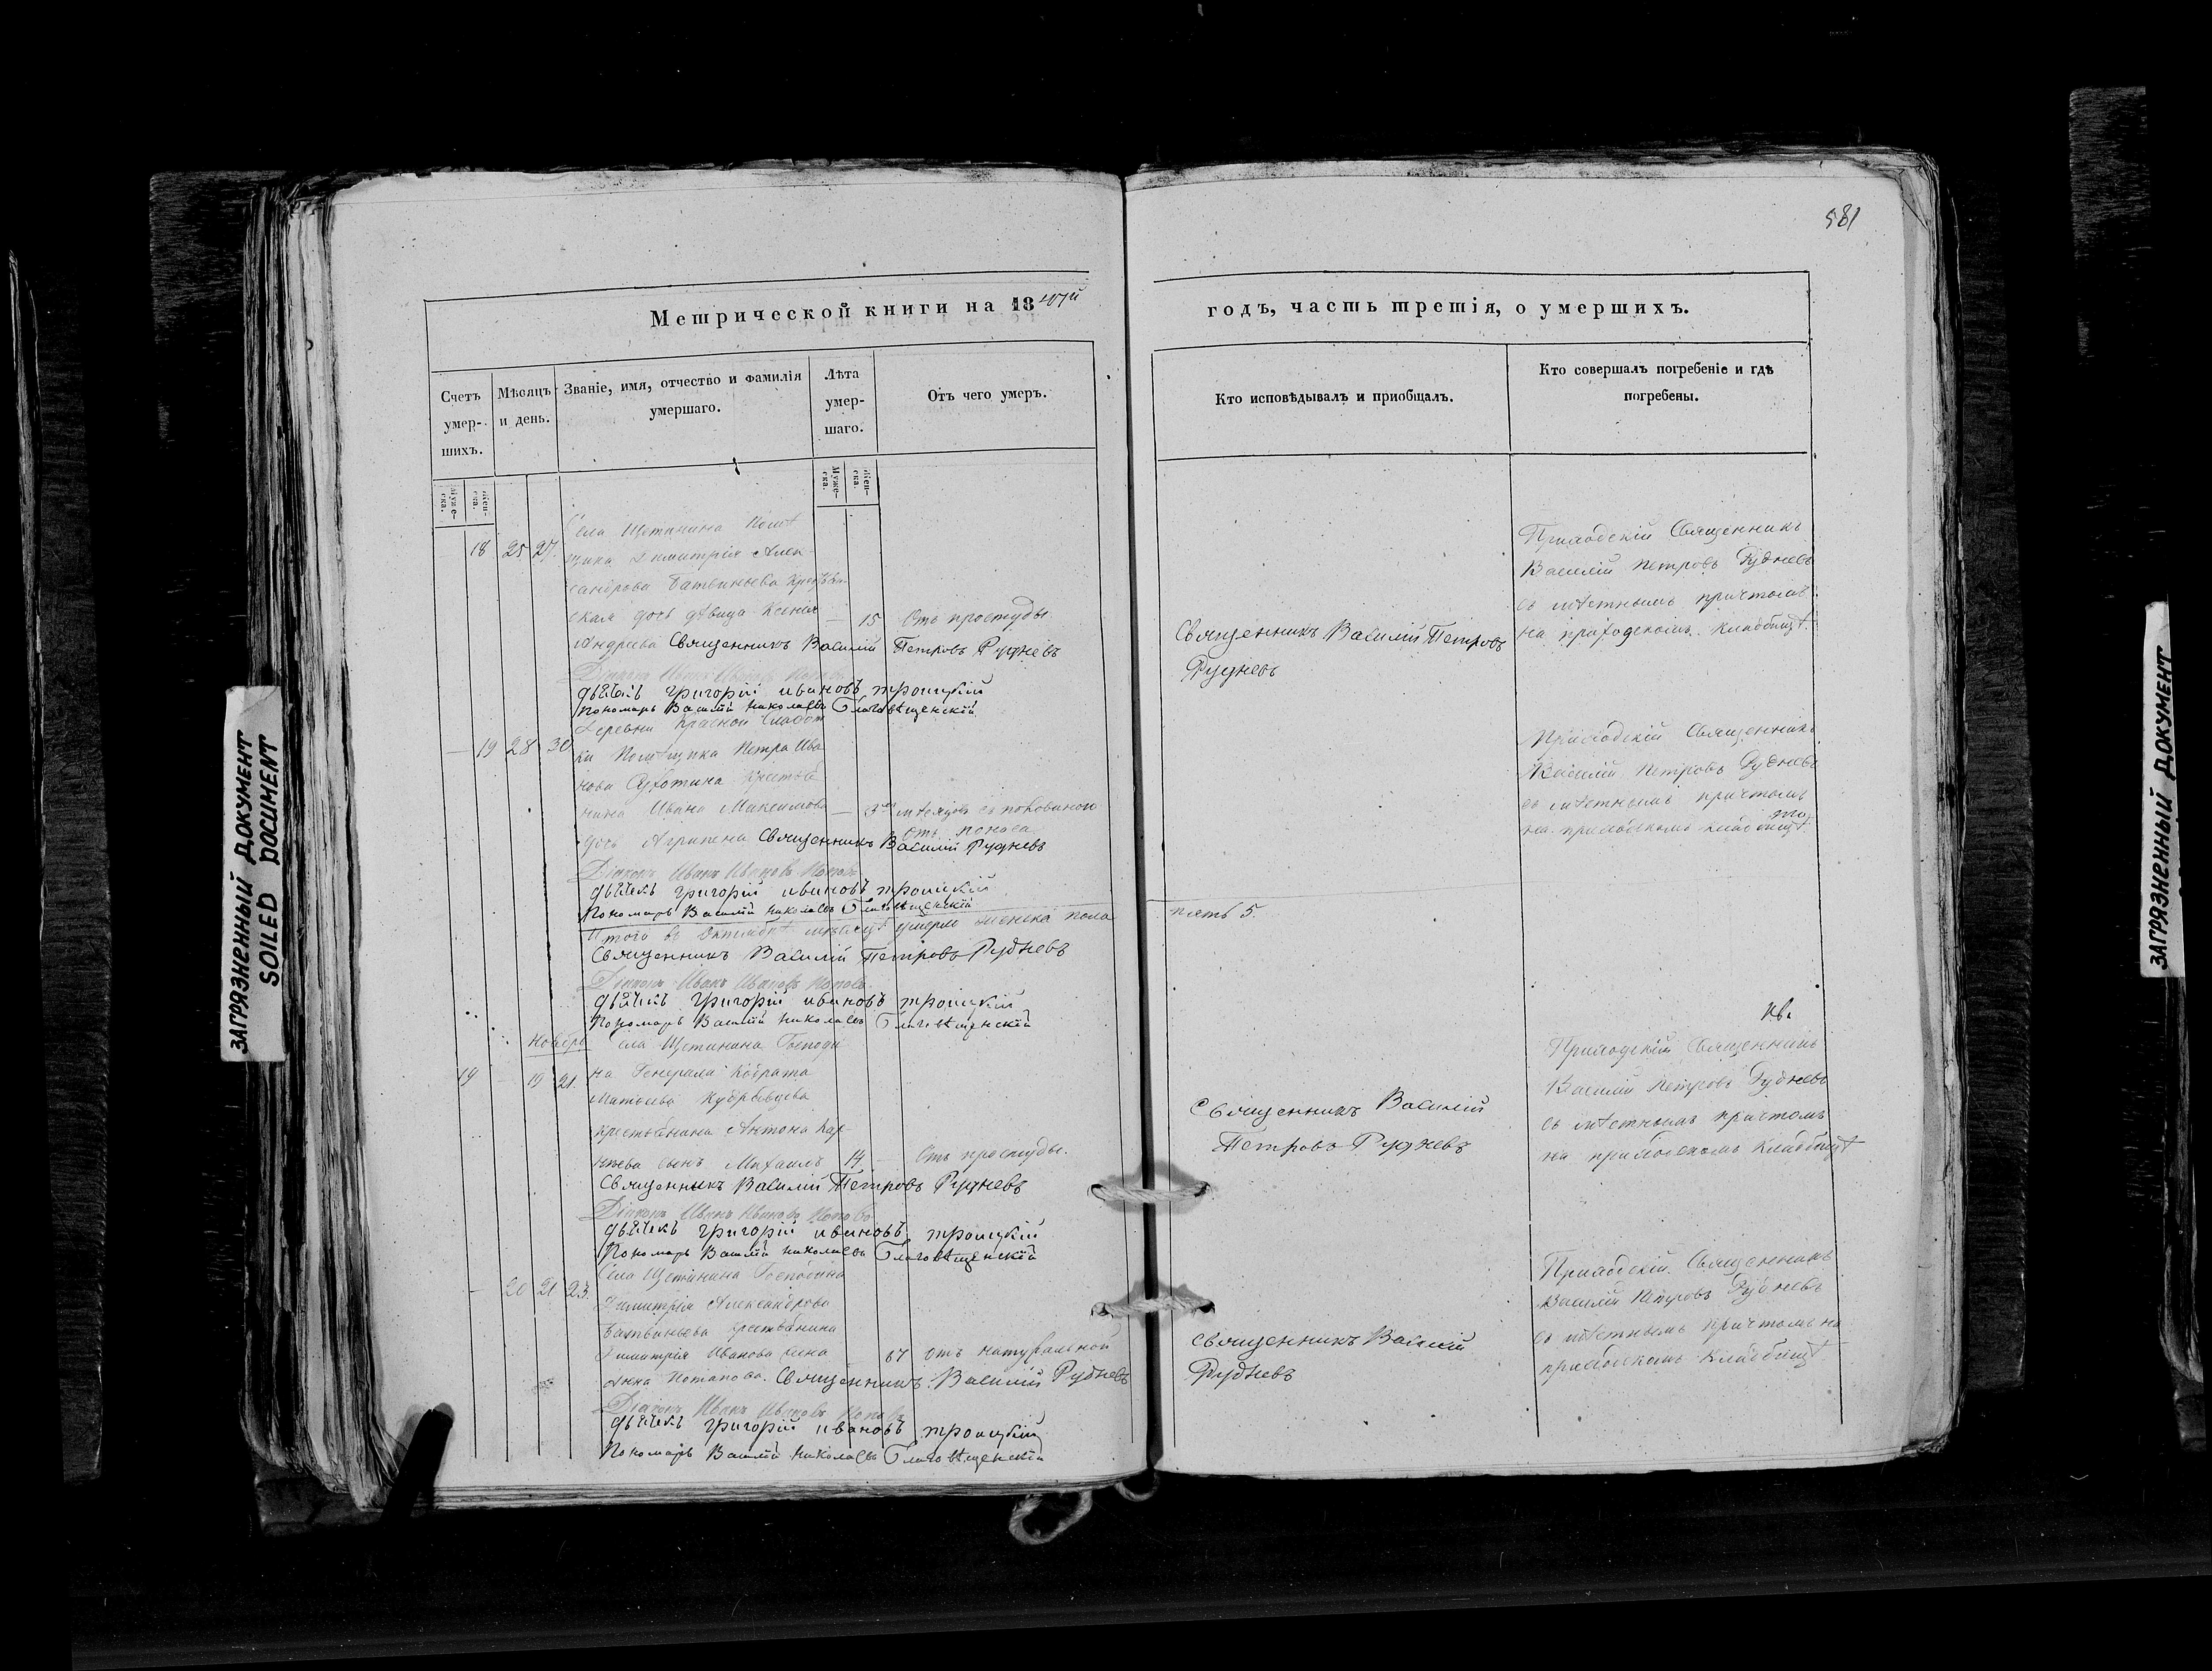 581
Метрической книги на 1847й
годъ, часть третія, о умершихъ.
Счетъ умер-шихъ.
Мѣсяцъ и день.
Званіе, имя, отчество и фамилія умершаго.
Лѣта умер-шаго.
Отъ чего умеръ.
Кто исповѣдывалъ и пріобщалъ.
Кто совершалъ погребеніе и гдѣ погребены.
Муже-ска.
Жен-ска.
Муже-ска.
Жен-ска.
Села Щетинина Помѣ
18 25 27. щика Димитрія Алек-
сандрова
ская дочь дѣвица Ксенія — 15 Отъ простуды.
Андреева Священникъ Василій Петровъ Рудневъ
Діаконъ Иванъ Ивановъ Поповъ
дьячекъ григорій ивановъ троицкій
Пономарь Василій николаевъ Благовѣщенскій
Священникъ Василій Петровъ
Рудневъ
Приходскій Священникъ
Василій Петровъ Рудневъ
съ мѣстнымъ причтомъ
на приходскомъ кладбищѣ.
Деревни Красной Слобод
— 19 28 30 ки Помѣщика Петра Ива
нова Суботина крестья
нина Ивана Максимова — 3 мѣсяцовъ съ половиною
дочь Агрипена Священникъ Василій Рудневъ
отъ поноса
Діаконъ Иванъ Ивановъ Поповъ
дьячекъ григорій ивановъ троицкій
Пономарь Василій николаевъ Благовѣщенскій
Приходскій Священникъ
Василій Петровъ Рудневъ
съ мѣстнымъ причтомъ
на приходскомъ кладбищѣ
Итого въ Октябрѣ мѣсяцѣ умерло женска пола
пять 5.
Священникъ Василій Петровъ Рудневъ
Діаконъ Иванъ Ивановъ Поповъ
дьячекъ григорій ивановъ троицкій
Пономарь Василій николаевъ Благовѣщенскій
Ноябрь Села Щетинина Господи
19 — 19 21. на Генерала
Матвеева
крестьянина Антона Кар
пѣева сынъ Михаилъ 14 — Отъ простуды.
Священникъ Василій Петровъ Рудневъ
Діаконъ Иванъ Ивановъ Поповъ
дьячекъ григорій ивановъ троицкій
Пономарь Василій николаевъ Благовѣщенскій
Священникъ Василій
Петровъ Рудневъ
Приходскій Священникъ
Василій Петровъ Рудневъ
съ мѣстнымъ причтомъ
на приходскомъ кладбищѣ
Села Щетинина Господина
— 20 21 23. Димитрія Александрова
крестьянина
Димитрія Иванова жена 67 отъ натуральной
Анна Потапова. Священникъ Василій Рудневъ
Діаконъ Иванъ Ивановъ Поповъ
дьячекъ григорій ивановъ троицкій
Пономарь Василій николаевъ Благовѣщенскій
Священникъ Василій
Рудневъ
Приходскій Священникъ
Василій Петровъ Рудневъ
съ мѣстнымъ причтомъ на
приходскомъ кладбищѣ
ЗАГРЯЗНЕННЫЙ ДОКУМЕНТ
SOILED DOCUMENT
ЗАГРЯЗНЕННЫЙ ДОКУМЕНТ